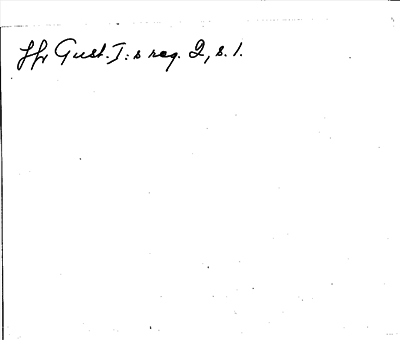 Jfr Gust. I:s reg. 2, s. 1.